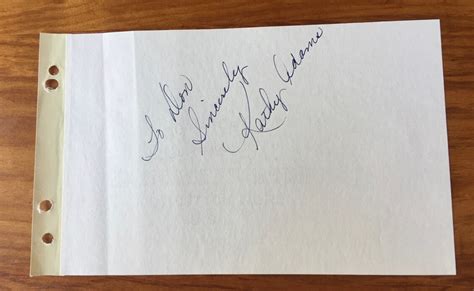 To Don
Sincerely
Kathy Adams